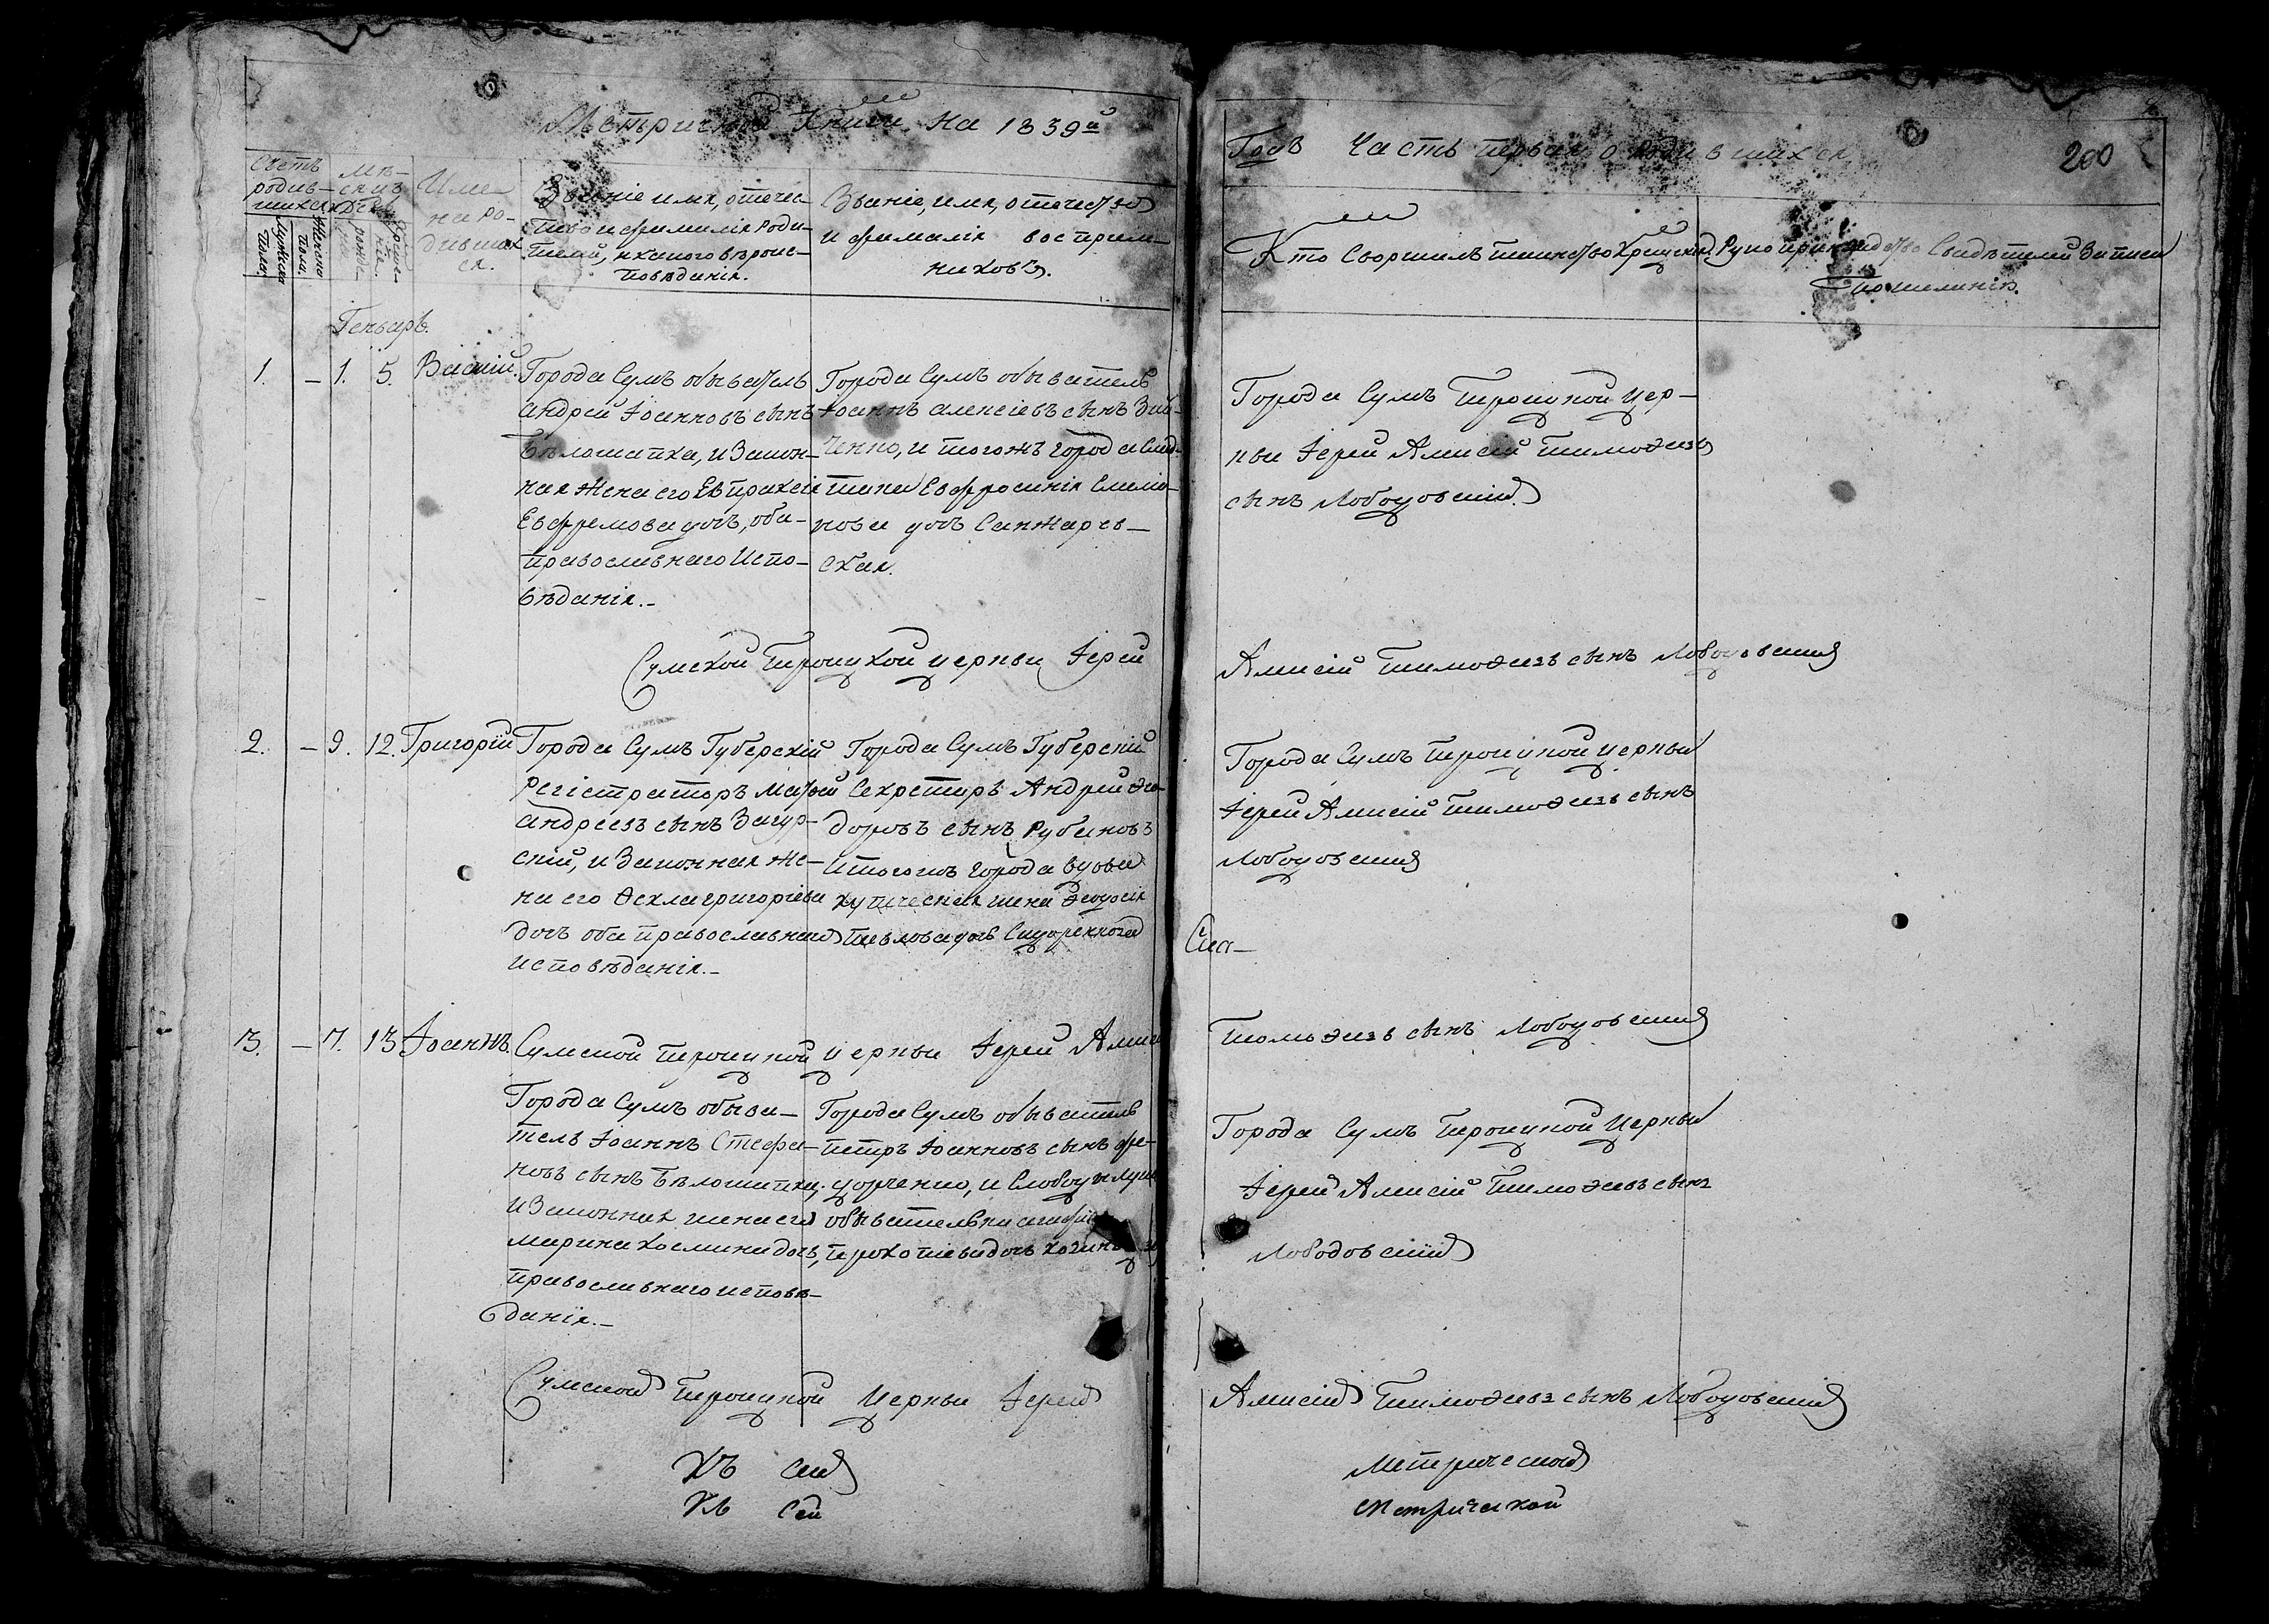 Метричной Книги на 1839й
Годъ Часть первая о родившихся
200
Счетъ родив-
шихся
Мужеска
пола.
Женска
пола.
Мѣ-
сяцъ
рожде-
ніе.
креще-
ніе.
Име-
на ро-
дивших
ся.
Званіе имя, отечес-
тво и фамилія роди-
телей, и какого вѣроис-
повѣданія.
Званіе, имя, отечество
и фамилія восприем-
никовъ.
Кто совершилъ таинство крещенія
Рукоприкладство свидѣтелей записи
по желанію.
Генварь.
1. – 1. 5. Василій.
Города Сумъ обыватель
Андрей Іоанновъ сынъ
Бѣлошапка, и закон-
ная жена его Евпраксія
Евфремова дочь, оба
православнаго испо-
вѣданія.-
Города Сумъ обыватель
Іоаннъ Алексіевъ сынъ
ченко, и тогожъ города
Евфросинія
нова дочь Санжарев-
ская.
Города Сумъ Троицкой цер-
кви Іерей Алексій Тимофеевъ
сынъ Лободовскій.
Сумской Троицкой церкви Іерей
Алексій Тимофеевъ сынъ Лободовскій
2. – 9. 12. Григорій
Города Сумъ Губерскій
Регістраторъ Матвей
Андреевъ сынъ Загур-
скій, и законная же-
на его Фекла Григоріева
дочь оба православнаго
исповѣданія.-
Города Сумъ Губерскій
Секретарь Андрей Фео-
доровъ сынъ Рубановъ
и тогожъ города вдова
купческая жена Феодосія
Павлова дочь
Города Сумъ Троицкой церкви
Іерей Алексій Тимофеевъ сынъ
Лободовскій
3. – 7. 13 Іоаннъ.
Сумской Троицкой церкви Іерей Алексій
Тимофеевъ сынъ Лободовскій
Города Сумъ обыва-
тель Іоаннъ Стефа-
новъ сынъ Бѣлошапка,
и законная жена его
Марина Космина дочь,
православнаго исповѣ-
данія.-
Города Сумъ обыватель
Петръ Іоанновъ сынъ Фе-
дорченко, и слободы
обывателька
Прокопіева дочь
Города Сумъ Троицкой Церкви
Іерей Алексій Тимофеевъ сынъ
Лободовскій
Сумской Троицкой Церкви Іерей
Алексій Тимофеевъ сынъ Лободовскій
Къ сей Метрической
Къ сей Метрической